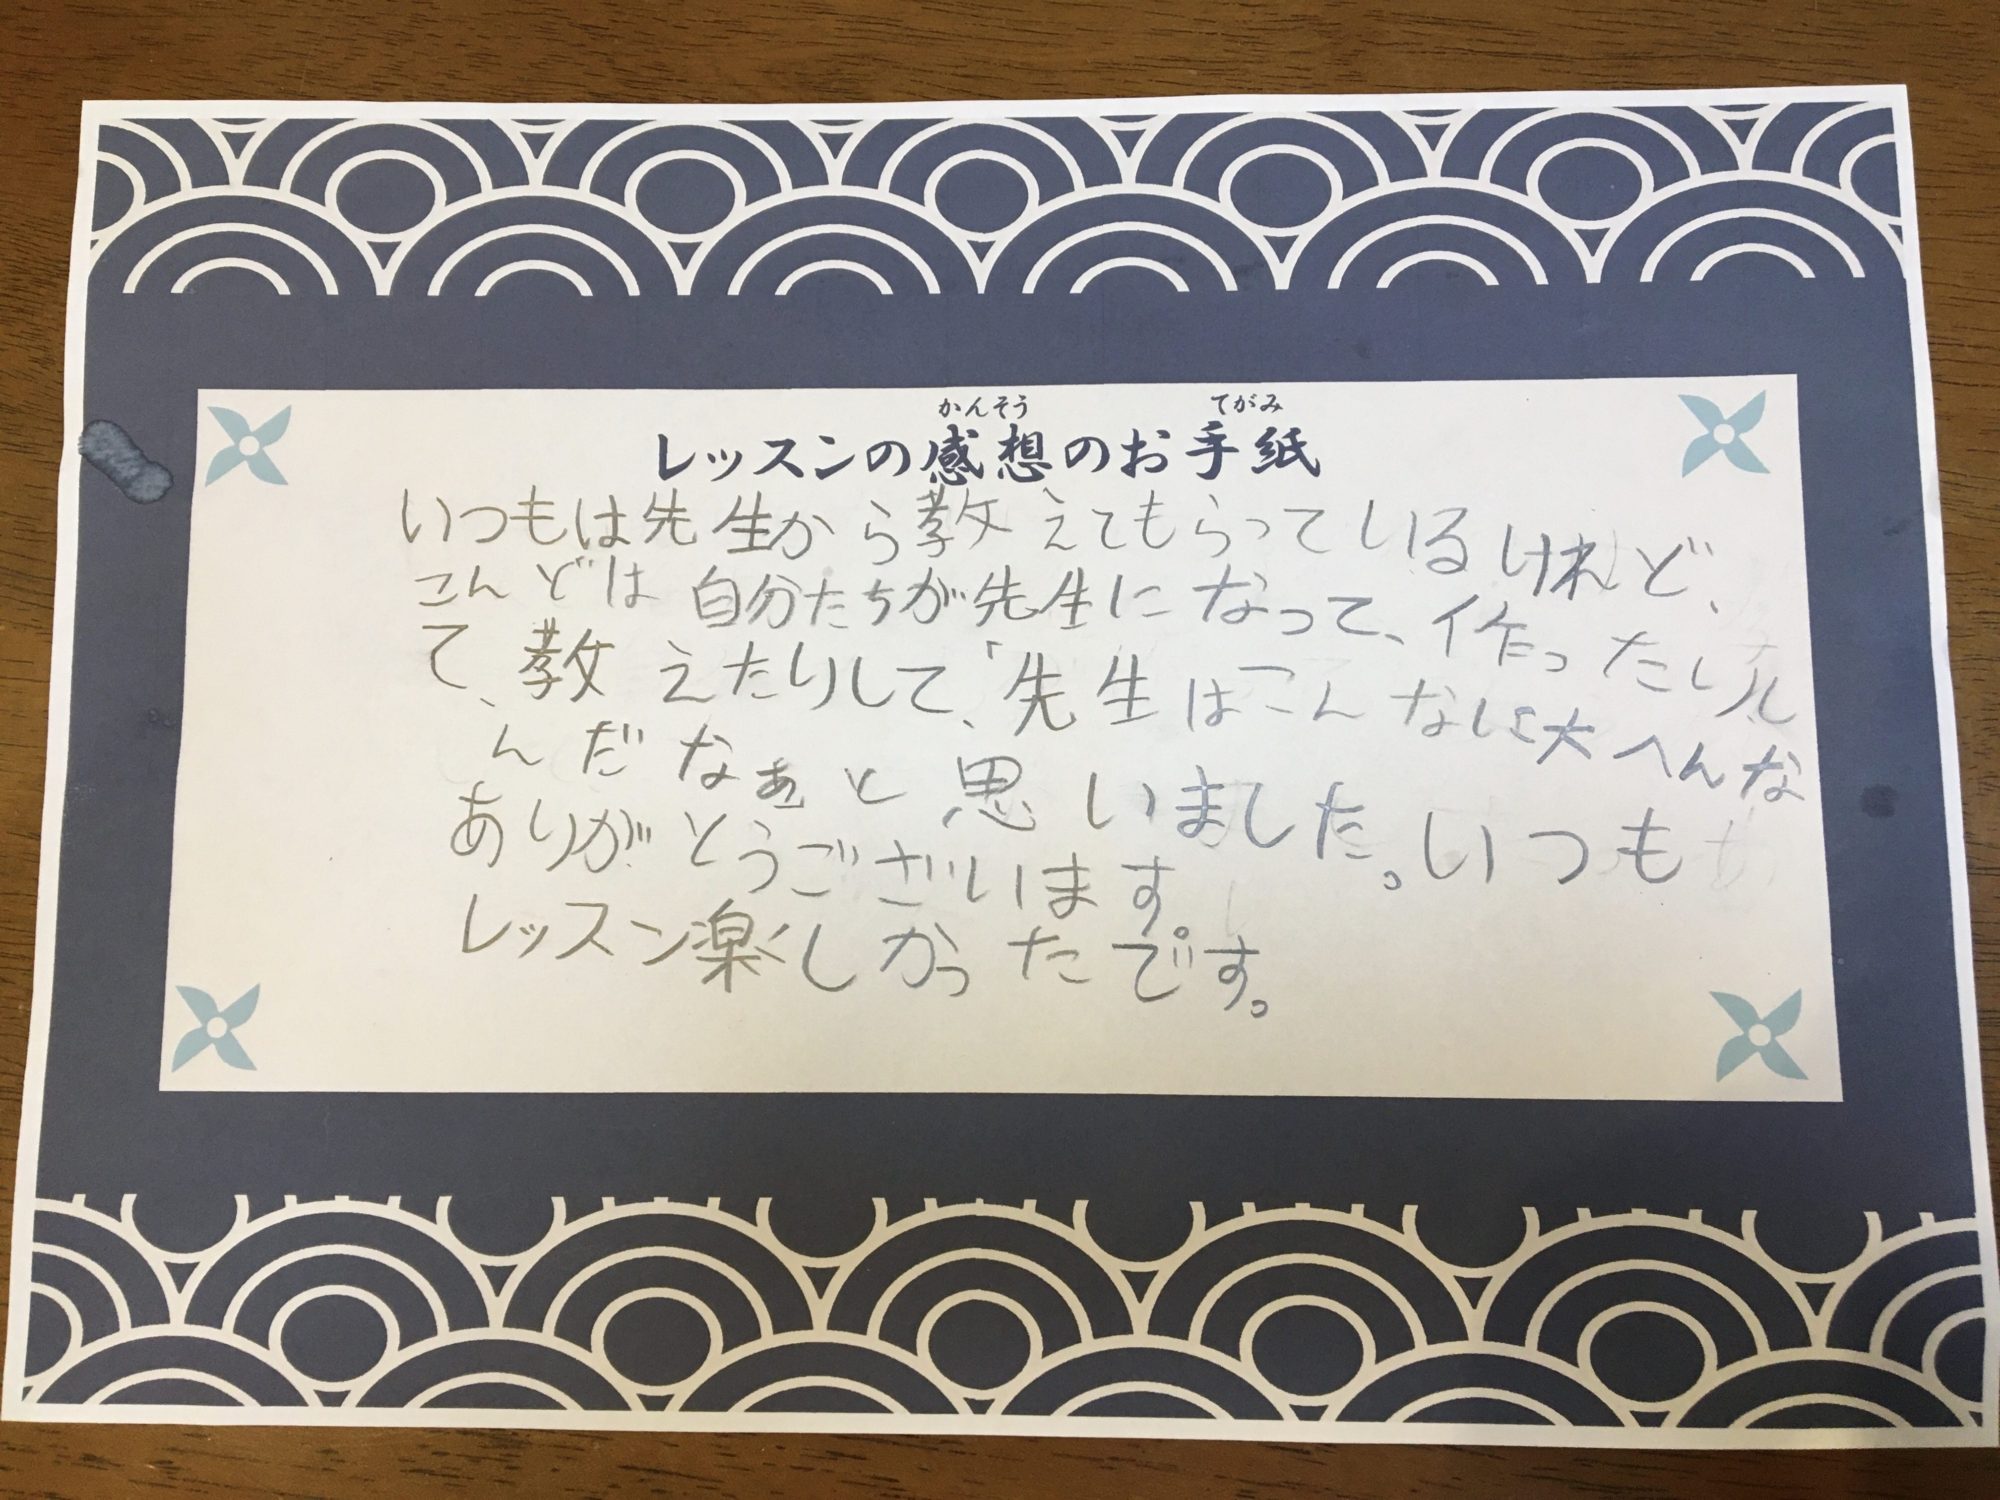 かんそう てがみ
レッスンの感想のお手紙
いつもは先生から教えてもらっているけれど、
こんどは自分たちが先生になって、作ったりし
て、教えたりして、「先生はこんなに大へんな
んだなぁと思いました。いつも
ありがとうございます。
レッスン楽しかったです。